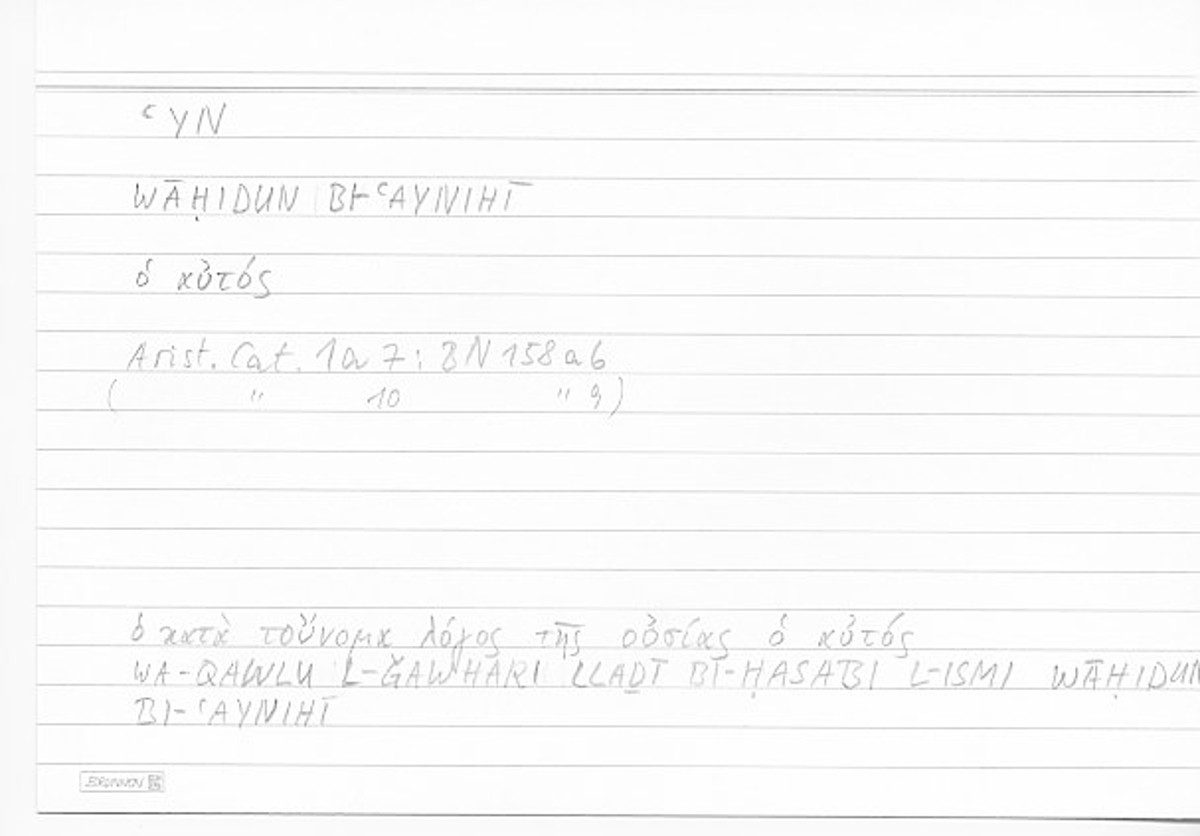 ʿYN
WĀḤIDUN BI-ʿAYNIHĪ
ὁ αὐτός
Arist. Cat. 1a 7: BN 158 a 6
( " 10 " 9 )
ὁ κατὰ τοὔνομα λόγος τῆς οὐσίας ὁ αὐτός
WA-QAWLU L-ǦAWHARI LLAḎĪ BI-ḤASABI L-ISMI WĀḤIDUN
BI-ʿAYNIHĪ
BRUNNEN